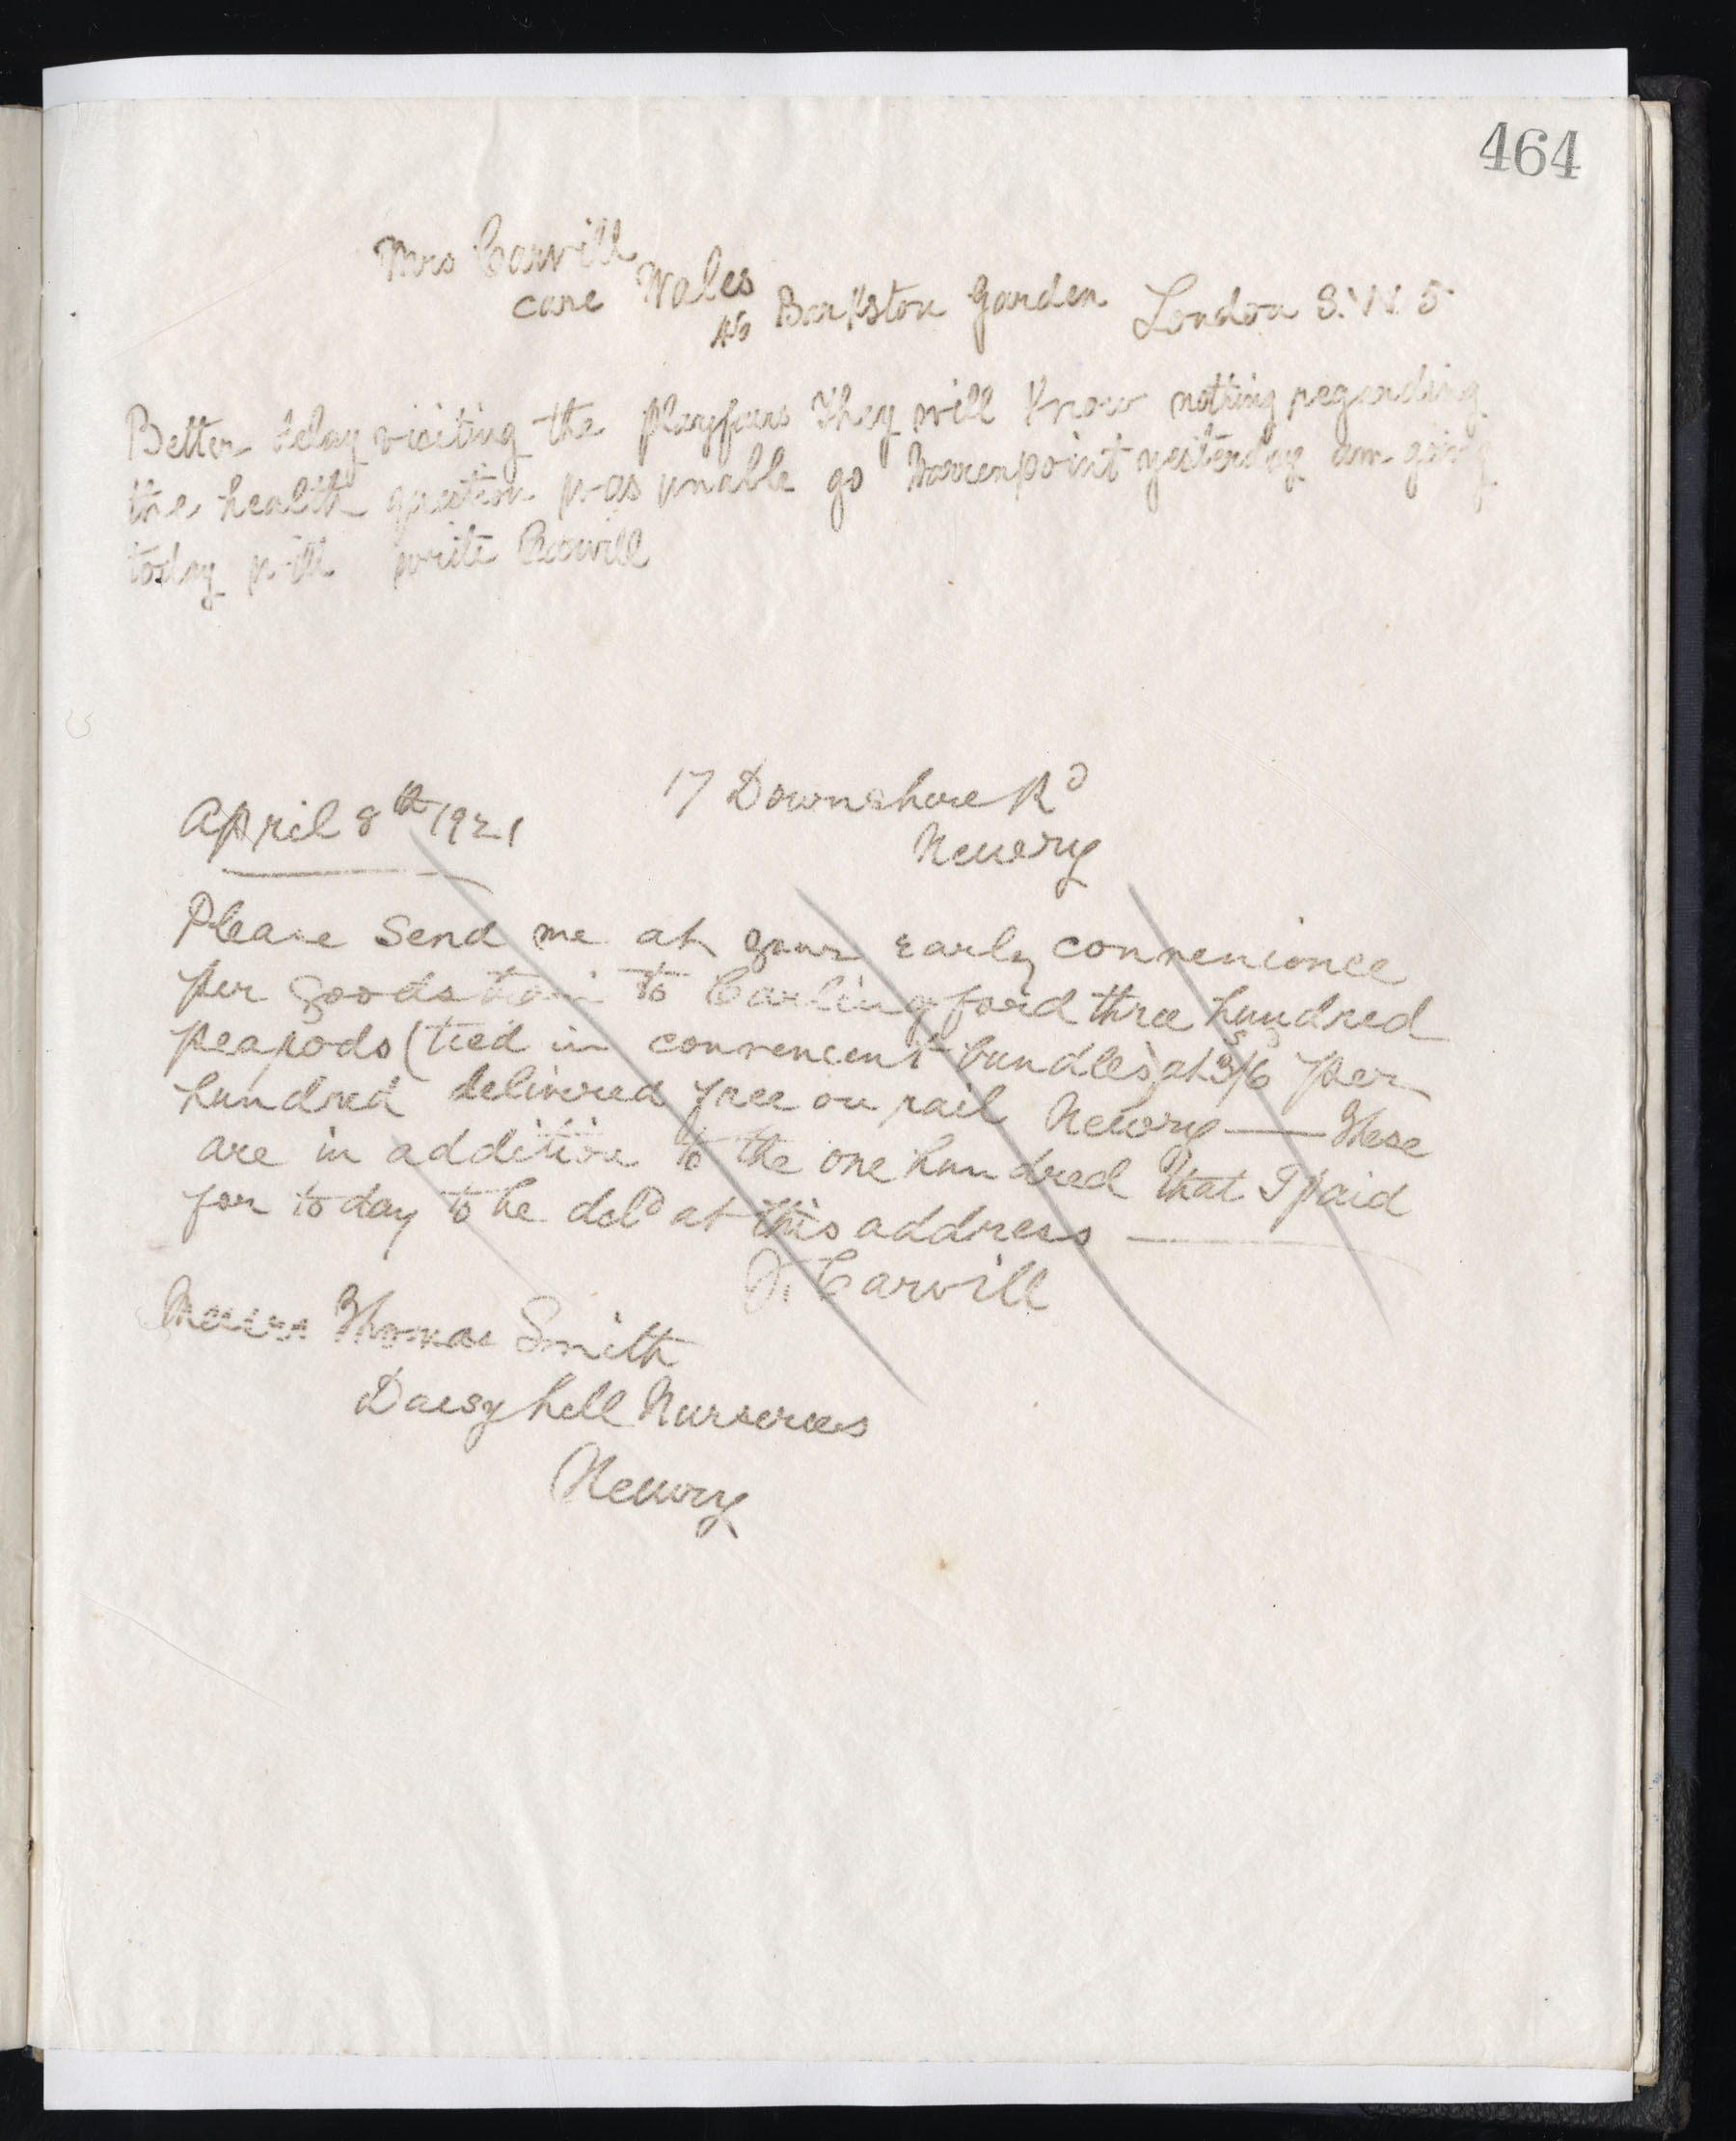 464
Mrs Carvill
care Wales
Barkston Garden London S.W. 5
Better delay visiting the Playfairs They will know nothing regarding
the health question was unable go Warrenpoint yesterday am going
today will write Carvill
April 8th 1921
17 Downshire Rd
Newry
Please send me at your early convenience
per goods train to Carlingford three hundred
peapods (tied in convenient bundles) at 3/6 per
hundred delivered free on rail Newry — These
are in addition to the one hundred that I paid
for today to be deld at this address —
J. Carvill
Messrs Thomas Smith
Daisy hill Nurseries
Newry